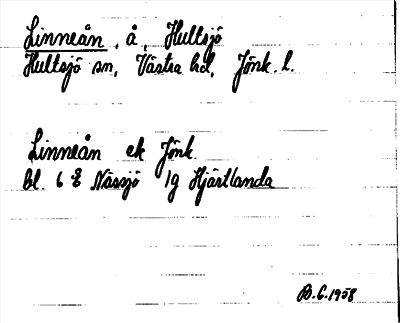 Linneån, å, Hultsjö
Hultsjö sn, Västra hd, Jönk. l.
Linneån ek Jönk
bl 6 Nässjö lg Hjärtlanda
B.G. 1958